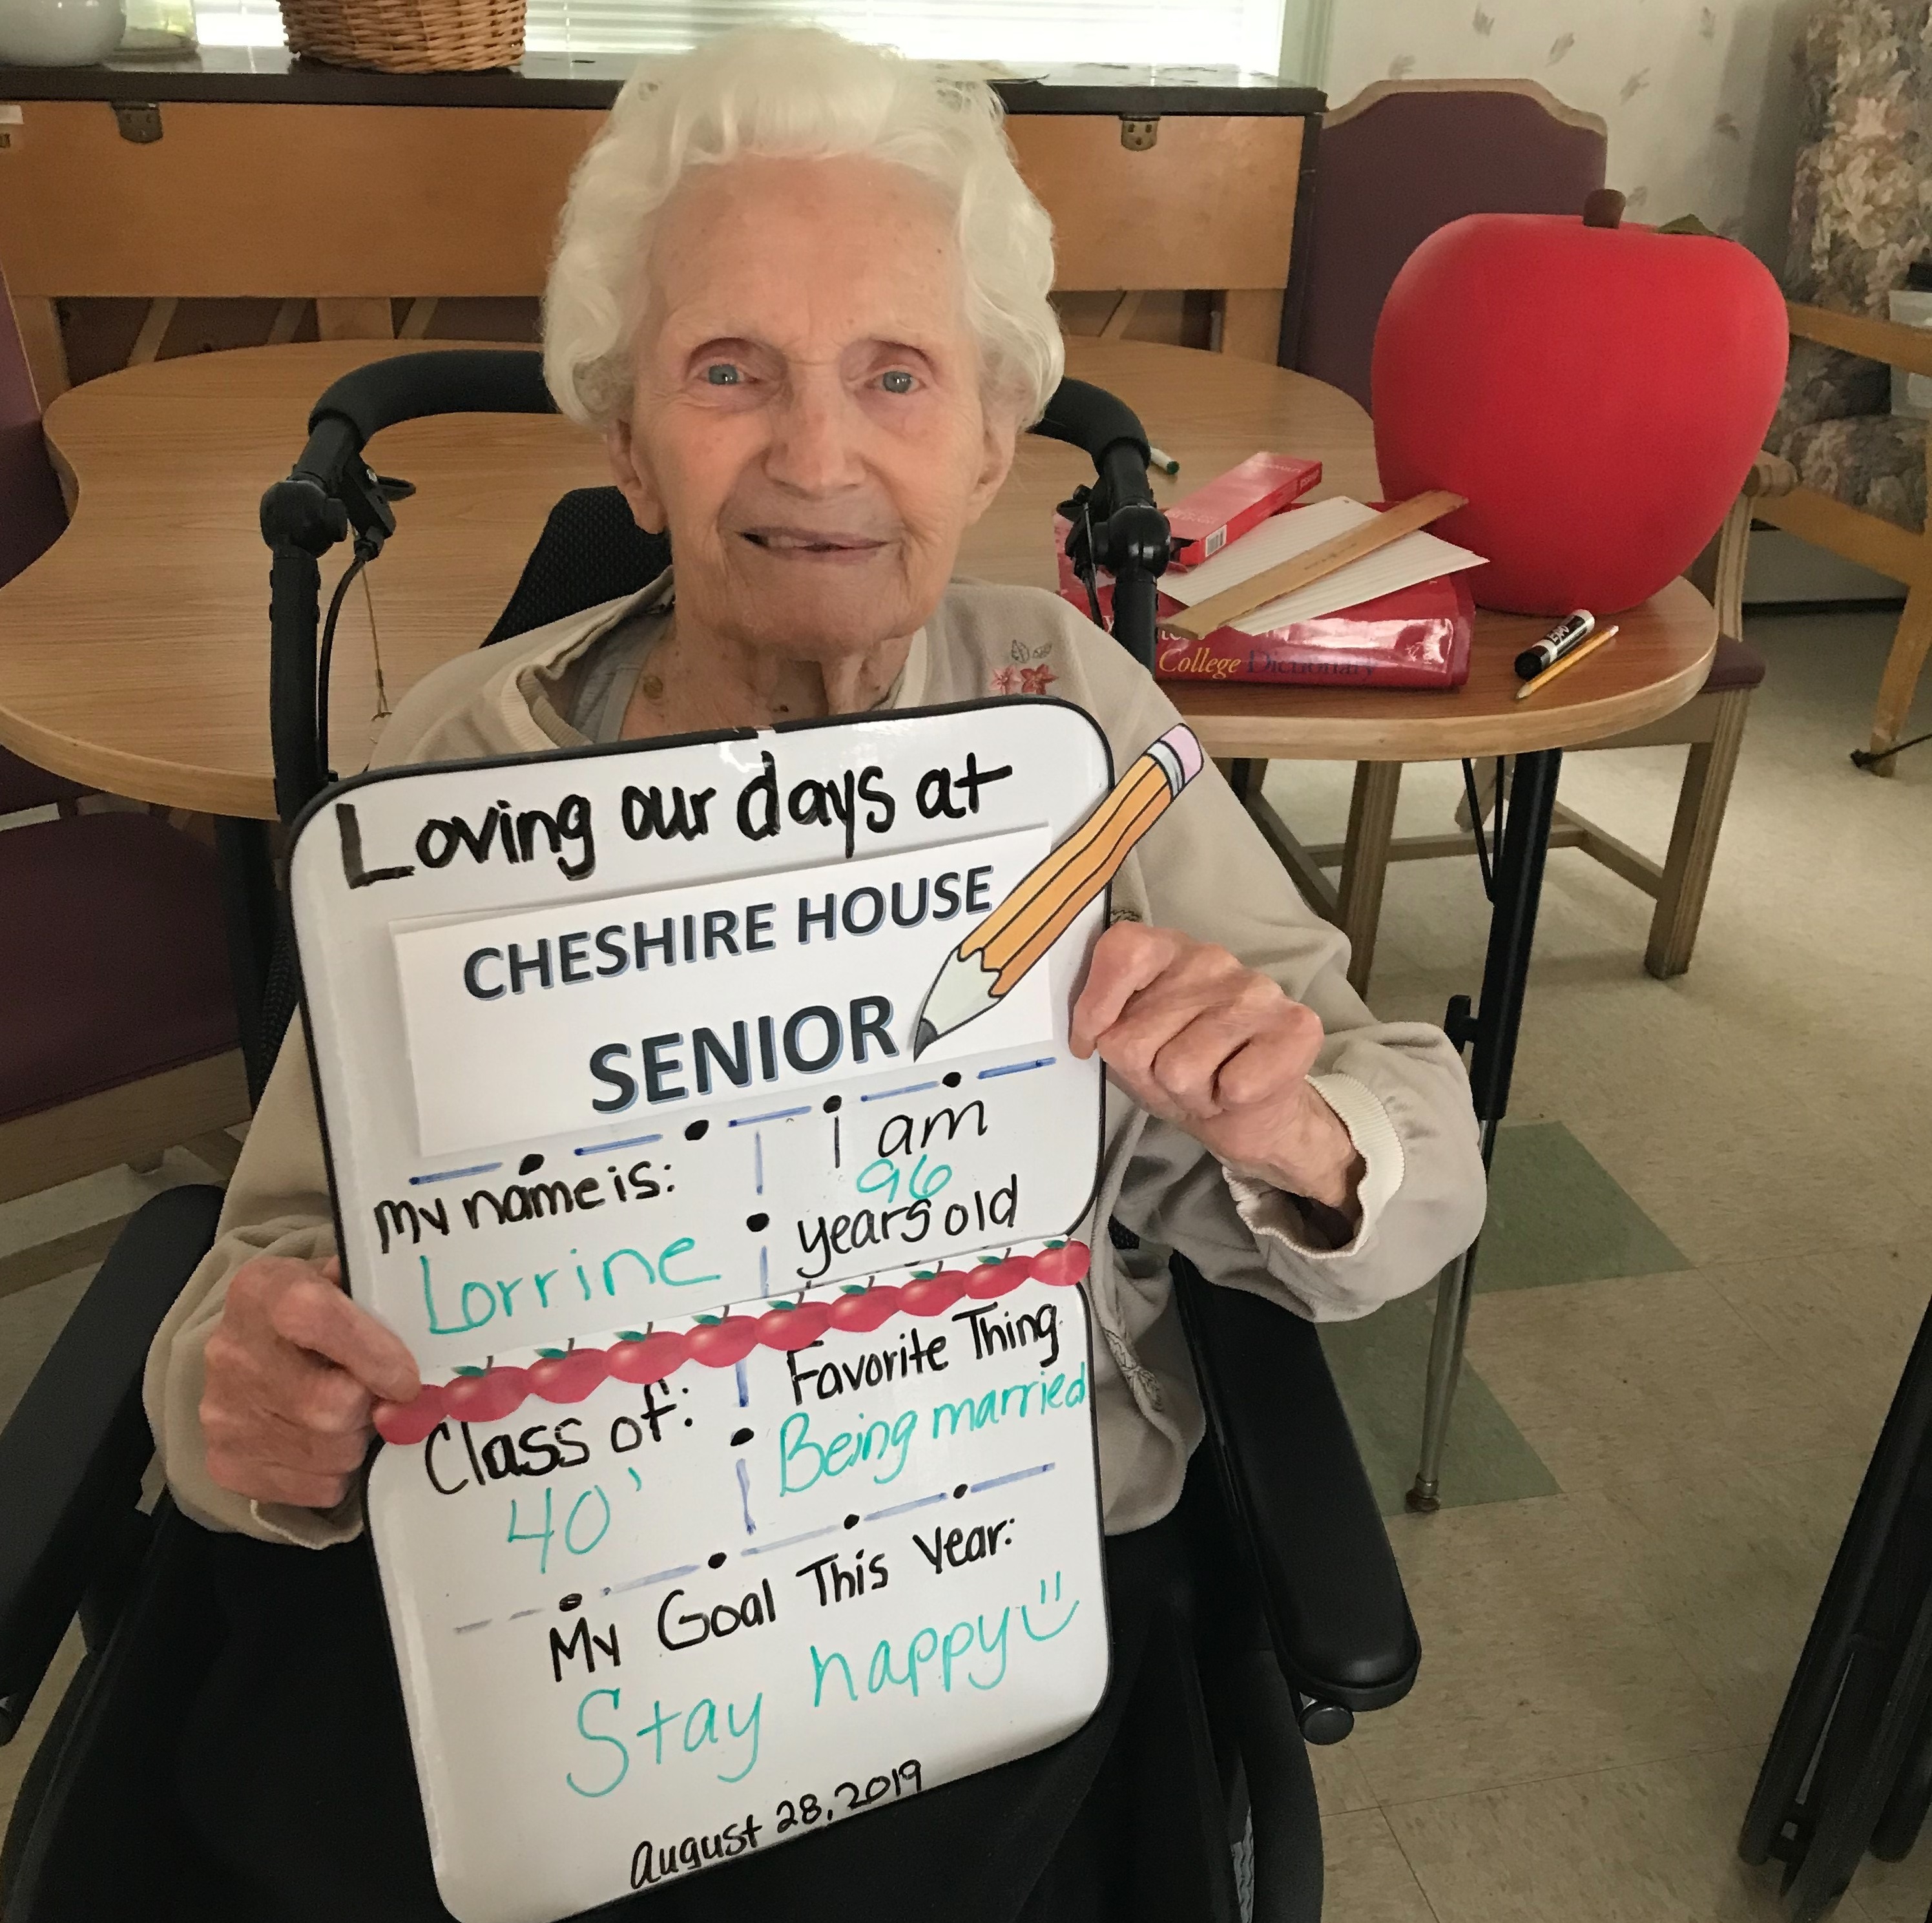 Loving our days at
CHESHIRE HOUSE
SENIOR
my name is:
Lorrine
i am
96
years old
Class of:
40'
Favorite Thing
Being married
My Goal This Year:
Stay happy
August 28, 2019
College Dictionary
EXPO